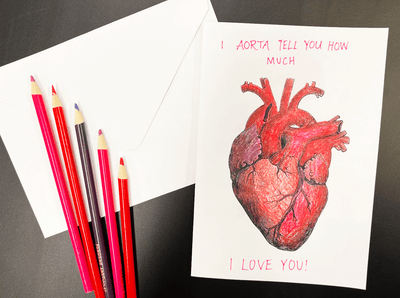 I AORTA TELL YOU HOW
MUCH
I LOVE YOU!